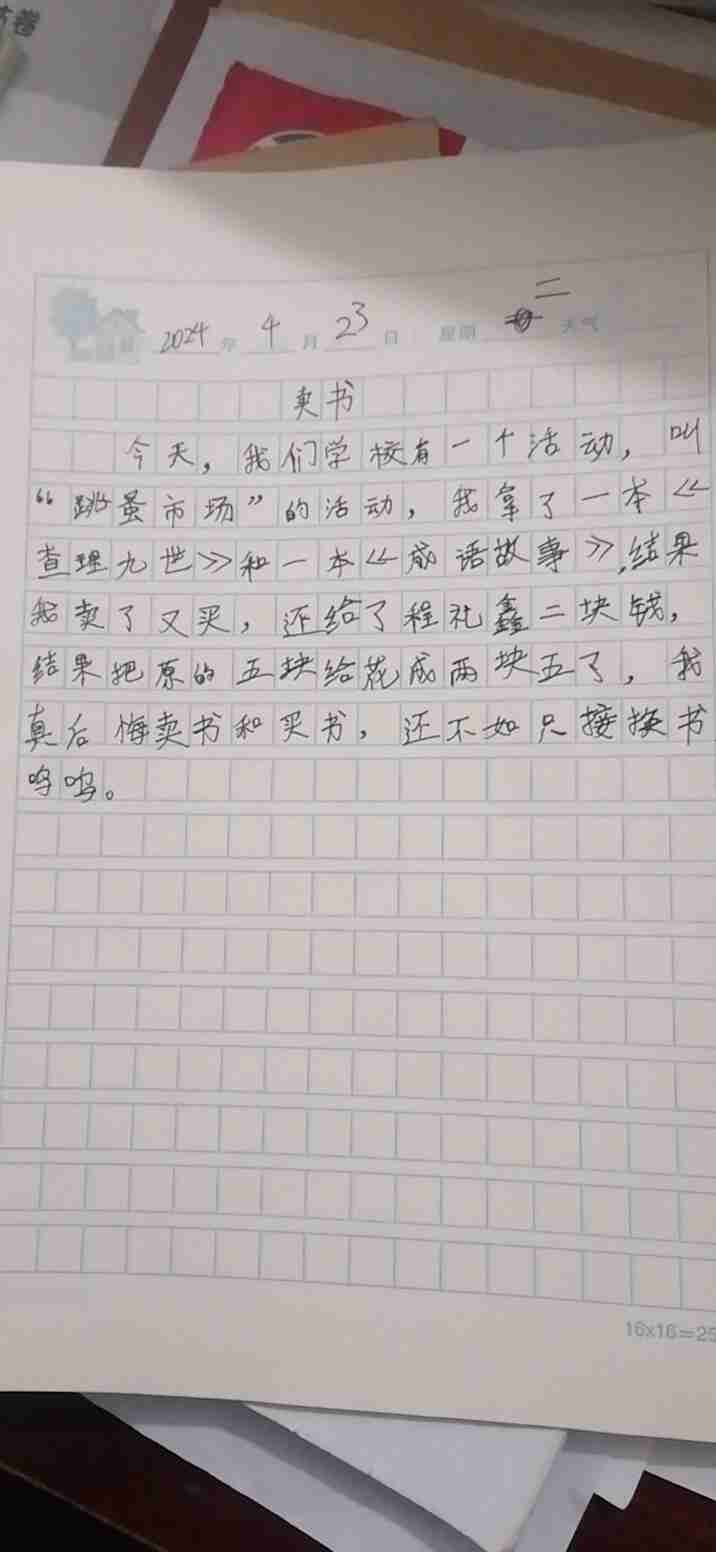 卷
2024年 4月 23日 星期 二 天气
卖书
今天，我们学校有一个活动，叫
“跳蚤市场”的活动，我拿了一本《
查理九世》和一本《成语故事》，结果
我卖了又买，还给了程礼鑫二块钱，
结果把原的五块给花成两块五了，我
真后悔卖书和买书，还不如只接换书
呜呜。
16x16=25